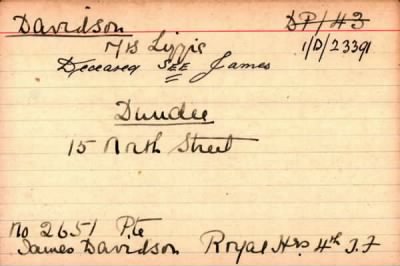 Davidson DP/43
M/S Lizzie 1/D/23391
Deceased SEE James
Dundee
15 North Street
No 2651 Pte
James Davidson Royal Hrs 4th T.F